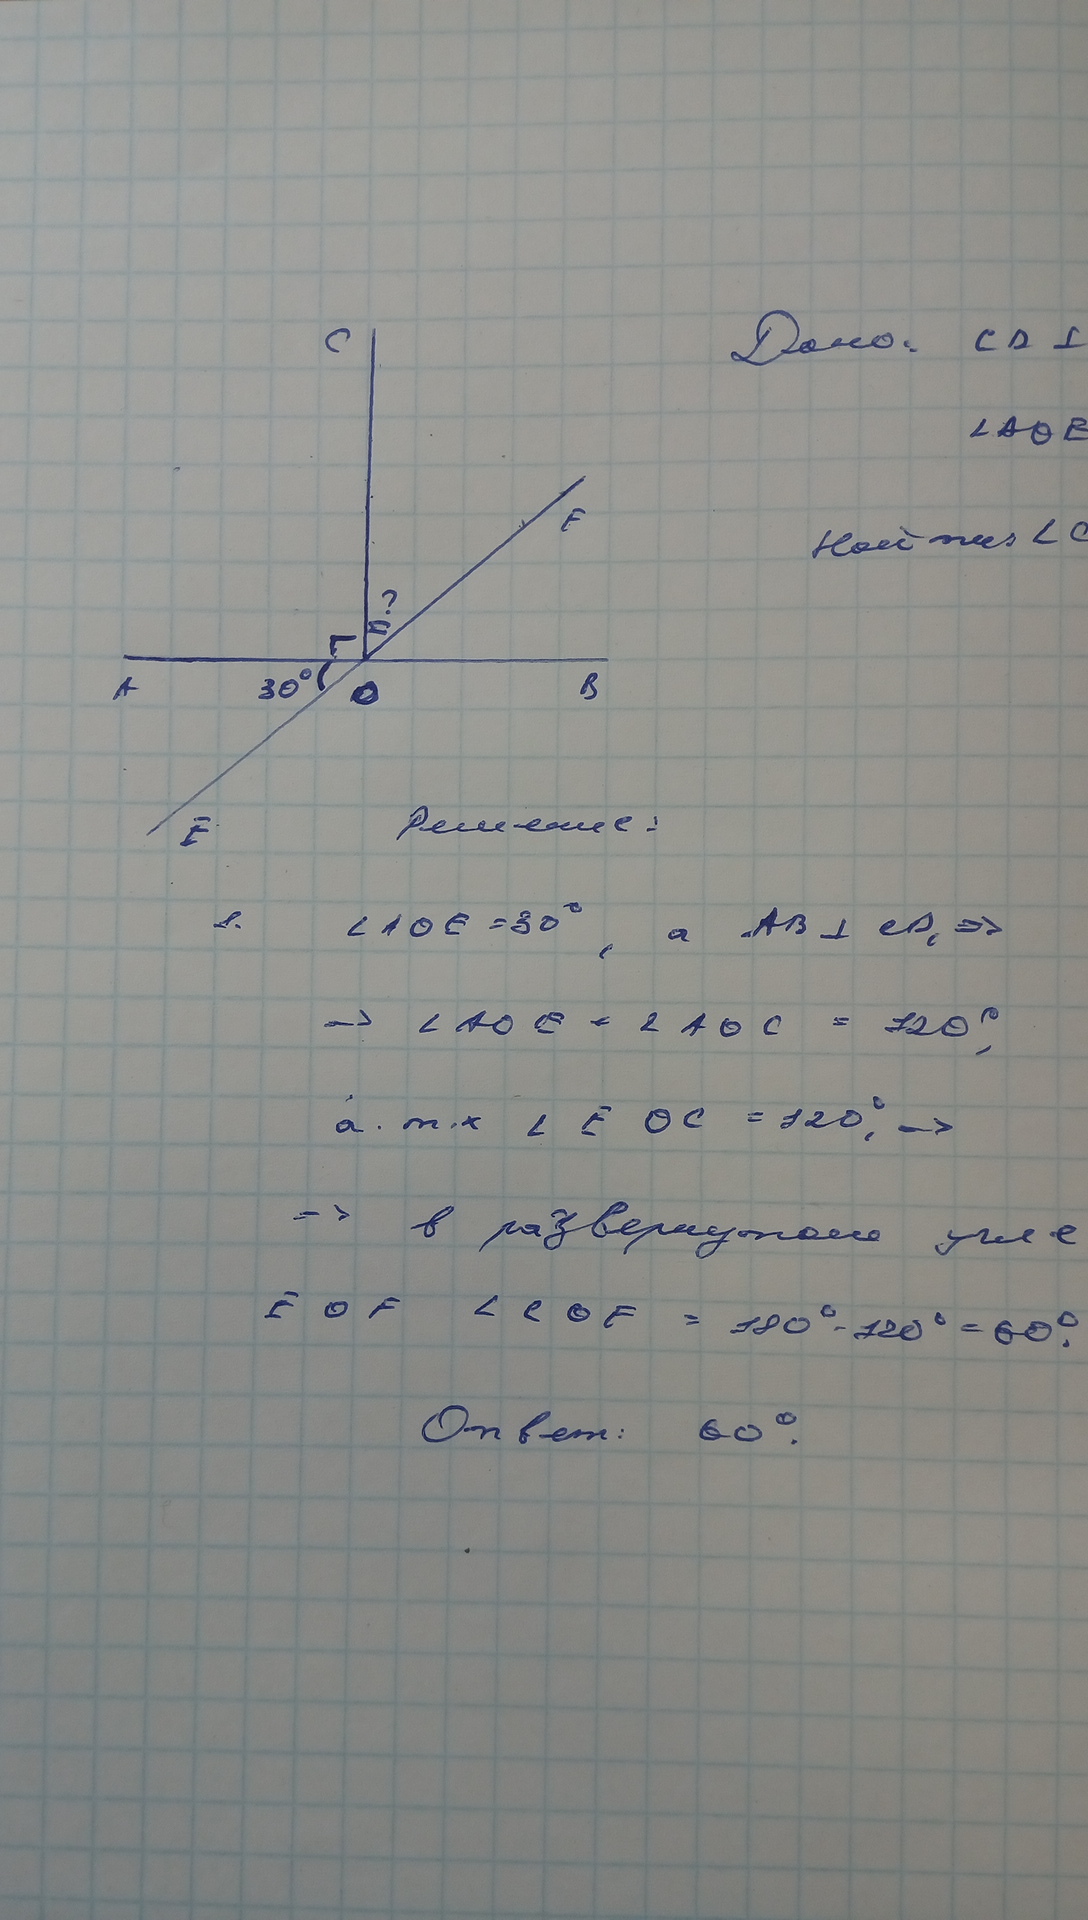 C
Дано: CD ⊥
∠AOE
F
Найти: ∠C
?
A
30°
O
B
E
Решение:
1. ∠AOE = 30°, а AB ⊥ CD, =>
=> ∠AOE + ∠AOC = 120°,
а т.к ∠EOC = 120°, =>
=> в развернутом угле
EOF ∠COF = 180° - 120° = 60°.
Ответ: 60°.